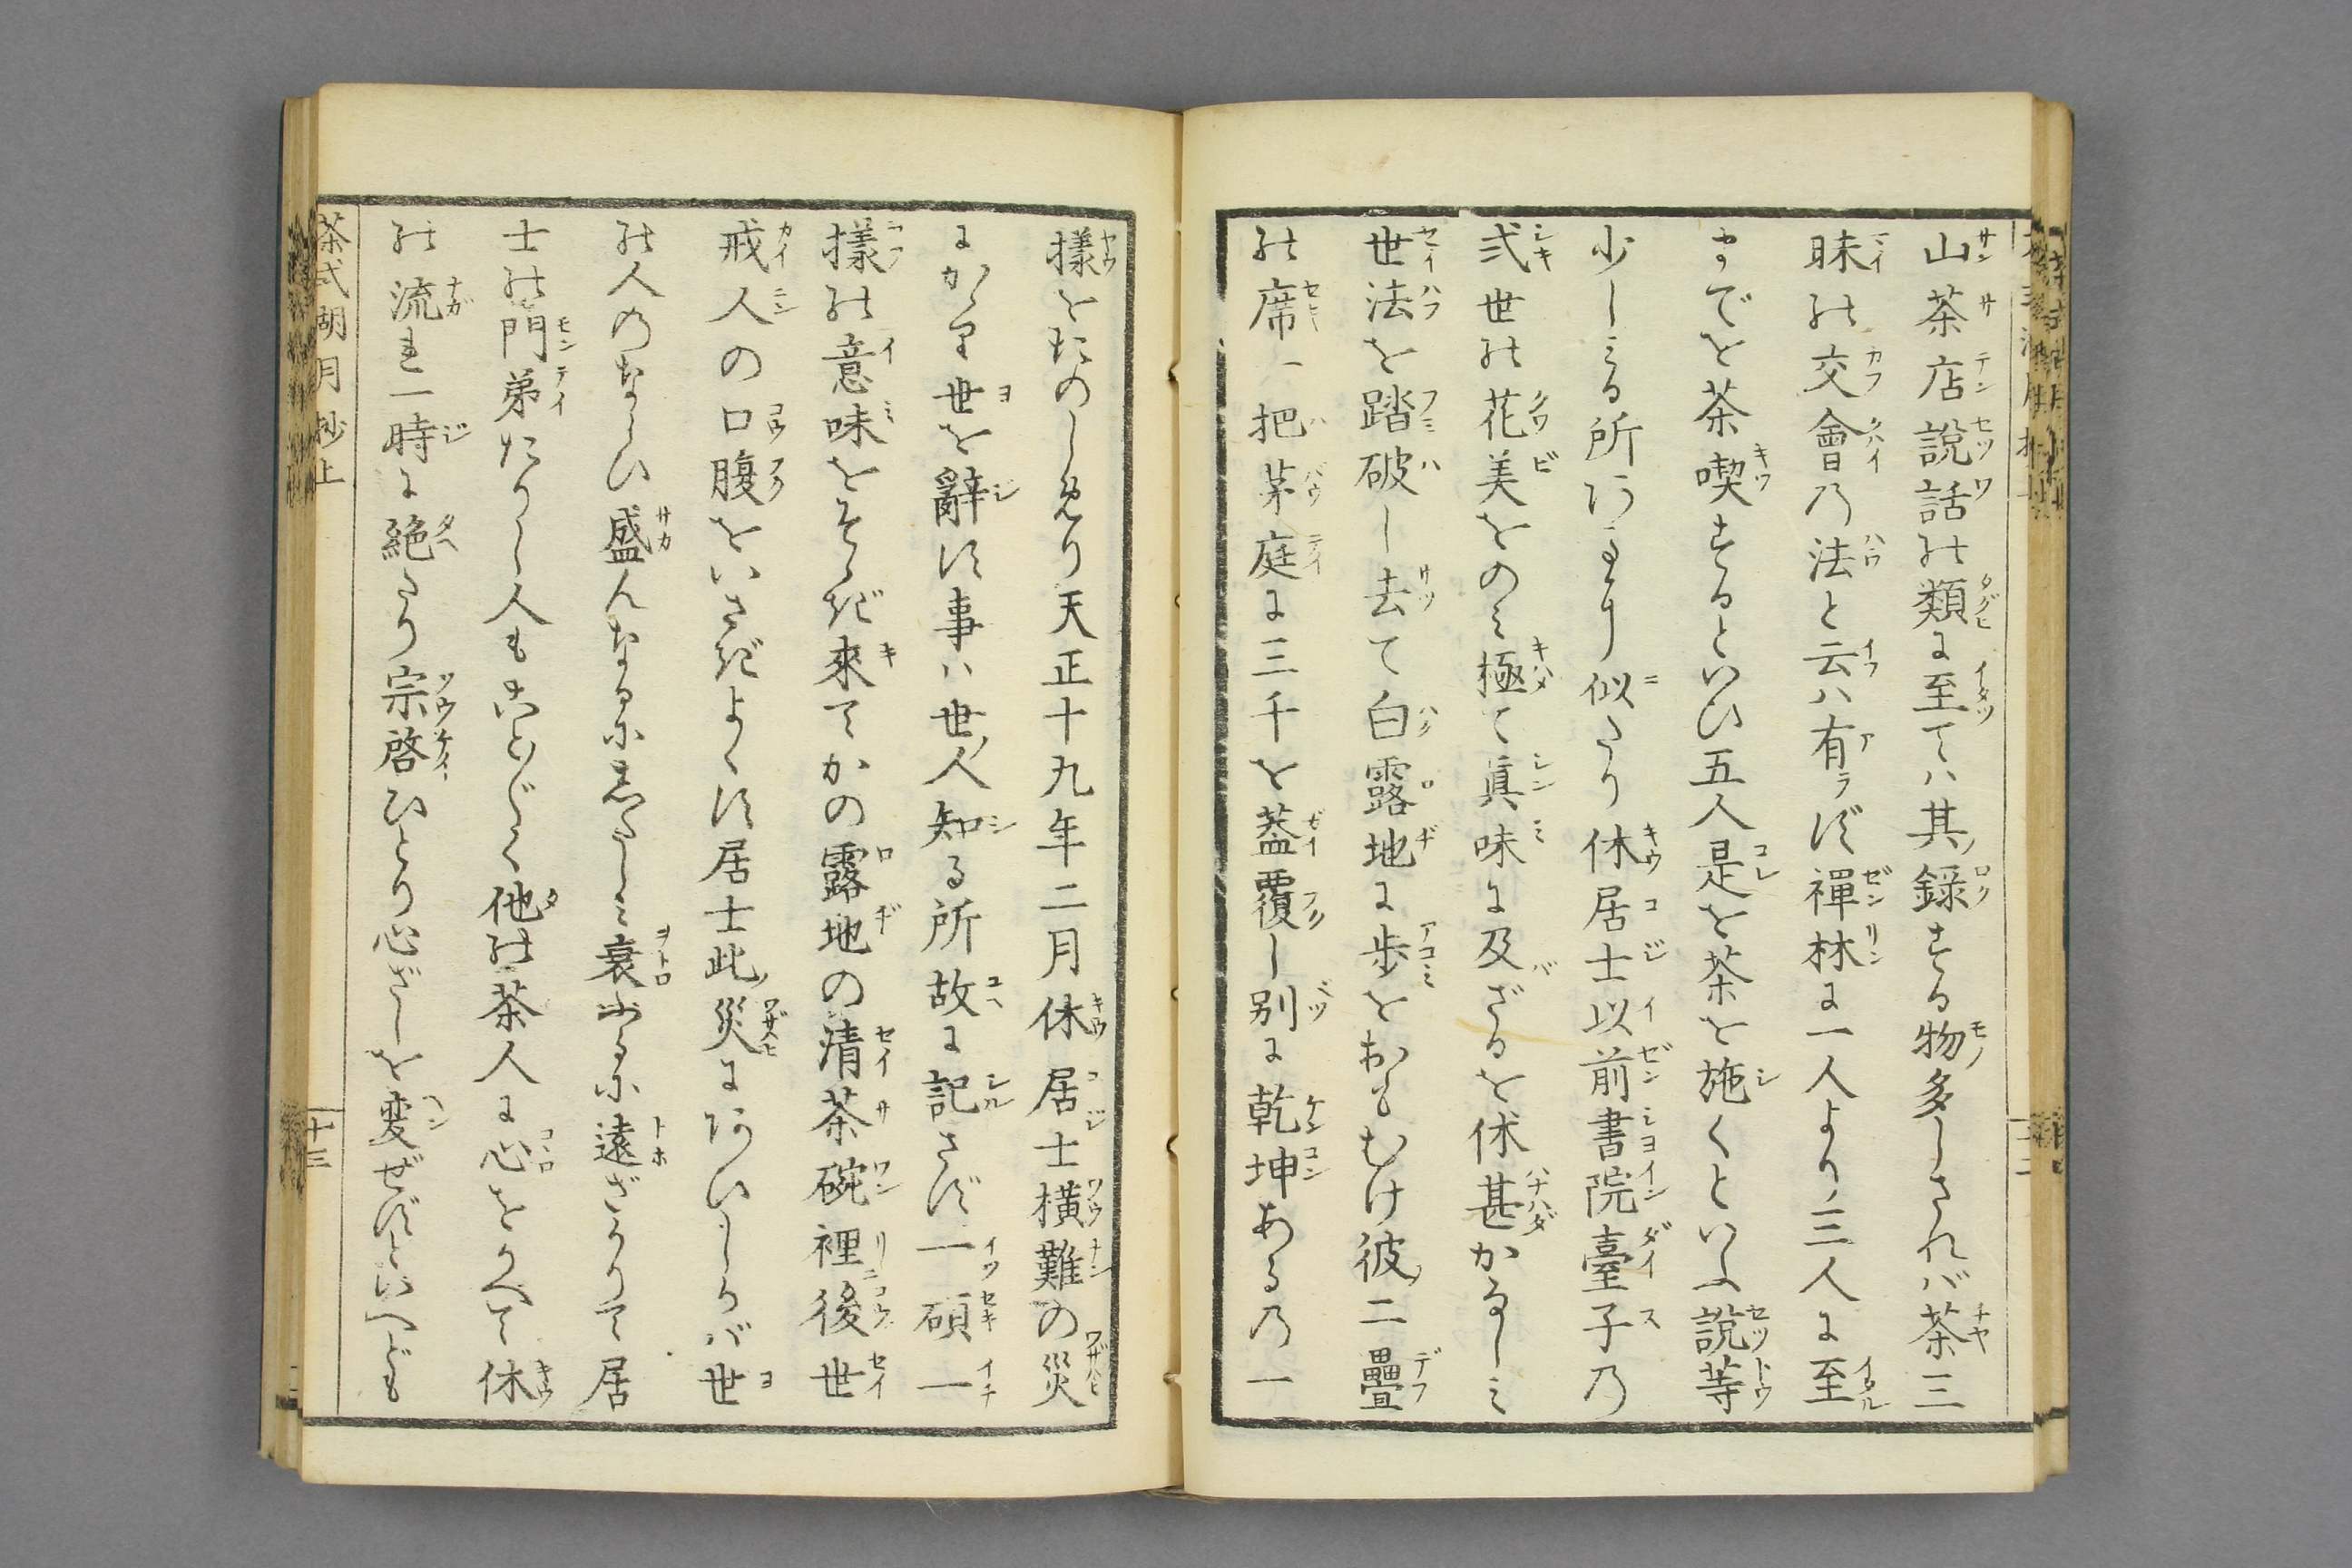 山茶店説話の類に至ては其録する物多しされバ茶三
昧の交會の法と云ハ有ラず禪林に一人より三人に至
までを茶喫するといひ五人是を茶を施くといふ説等
少しミる所ありて似たり休居士以前書院臺子の
式世の花美をのミ極て眞味に及ざるを休甚かなしミ
世法を踏破し去て白露地に歩をおもむけ彼二疊
の席一把茅庭に三千を蓋覆し別に乾坤あるの一
樣をたのしめり天正十九年二月休居士横難の災
にかゝり世を辭す事ハ世人知る所故に記さず一碩一
樣の意味をそゝぎ來てかの露地の清茶碗裡後世
戒人の口腹をいさぎよくす居士此災にあひしかバ世
の人のならひ盛んなるにしたしミ衰ふるに遠ざかりて居
士の門弟たりし人もことごとく他の茶人に心をうつして休
の流れ一時に絶たり宗啓ひとり心ざしを変ぜずといへども
茶式湖月抄上
十三